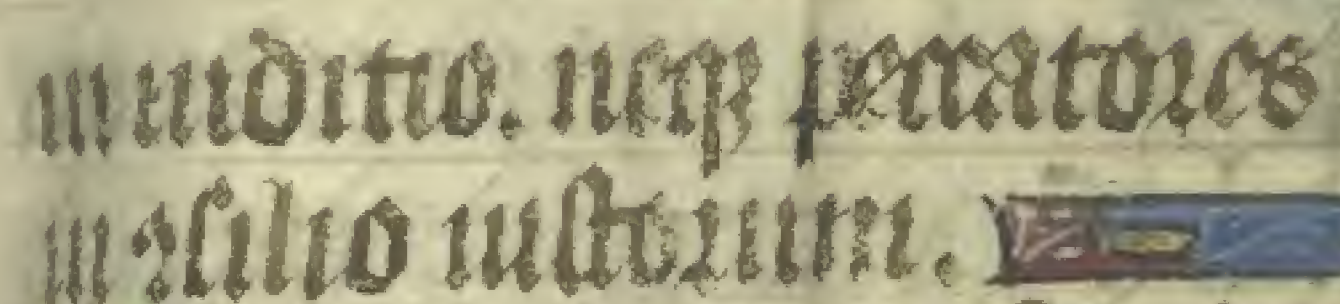 in iuditio. neqꝫ peccatores
in ꝯſilio iuſtorum.